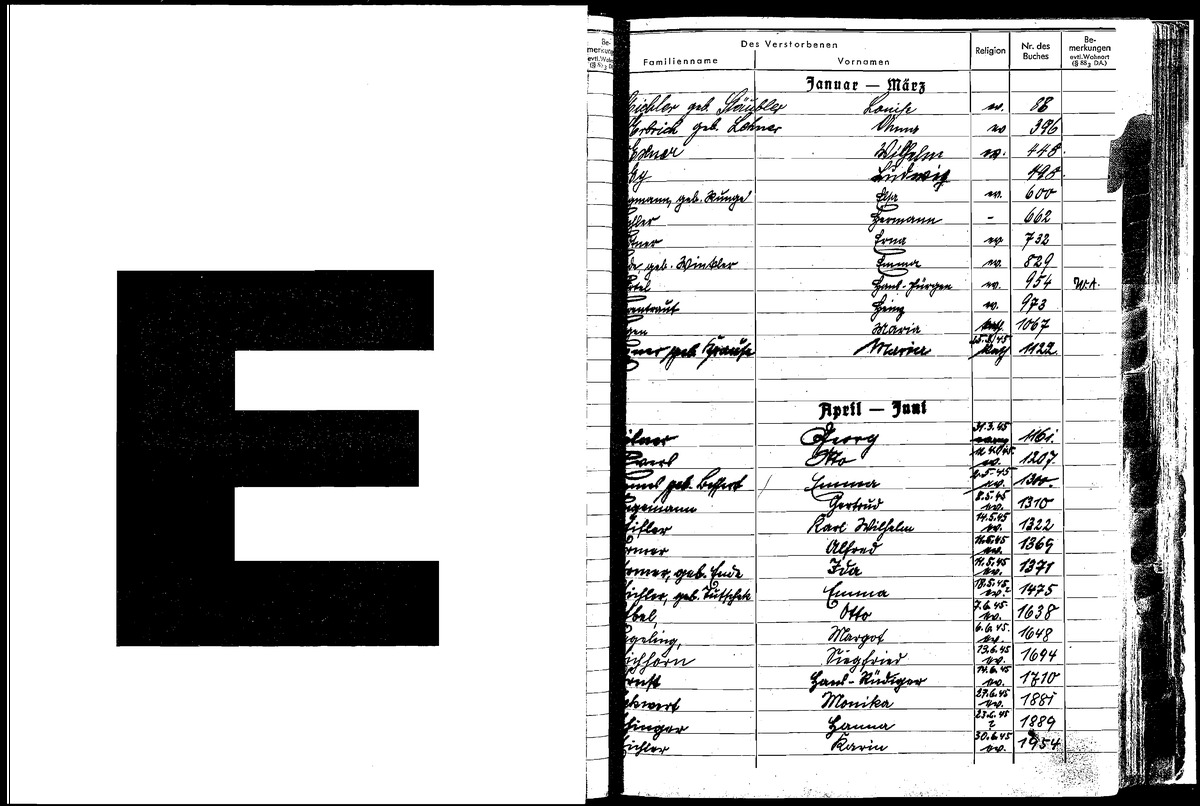 E
Be-
merkungen
evtl. Wohn
Des Verstorbenen
Familienname
Vornamen
Religion
Nr. des
Buches
Be-
merkungen
evtl. Wohnort
(§ 88 3 DA.)
Januar — März
geb. Stäubler Louise ev. 88
geb. Lehner Anna ev 396
Wilhelm ev. 448.
Ludwig 498.
gmann, geb. Runge Elsa ev. 600
Hermann - 662
Erna ev. 732
de, geb. Winkler Emma ev. 829
rtel Hans-Jürgen ev. 954 W.A.
rentraut Heinz ev. 973
gen Maria kath. 1067
ner geb. Krause Maria kath 1122.
April — Juni
Georg 31.3.45 1161.
wers Otto ev. 1207.
geb. Emma 2.5.45 ev. 1300.
gemann Gertrud 8.5.45 ev. 1310
Karl Wilhelm 14.5.45 ev. 1322
rmer Alfred 11.5.45 ev. 1369
rmer, geb. Ende Ida 11.5.45 ev. 1371
ichler, geb. Tutschek Emma 18.5.45 ev. 1475
bel, Otto 7.6.45 ev. 1638
geling, Margot 6.6.45 ev. 1648
ichhorn Siegfried 13.6.45 ev. 1694
rnst Hans-Rüdiger 14.6.45 ev. 1710
ckwert Monika 27.6.45 ev. 1881
finger Hanna 23.6.45 ? 1889
ichler Karin 30.6.45 ev. 1954